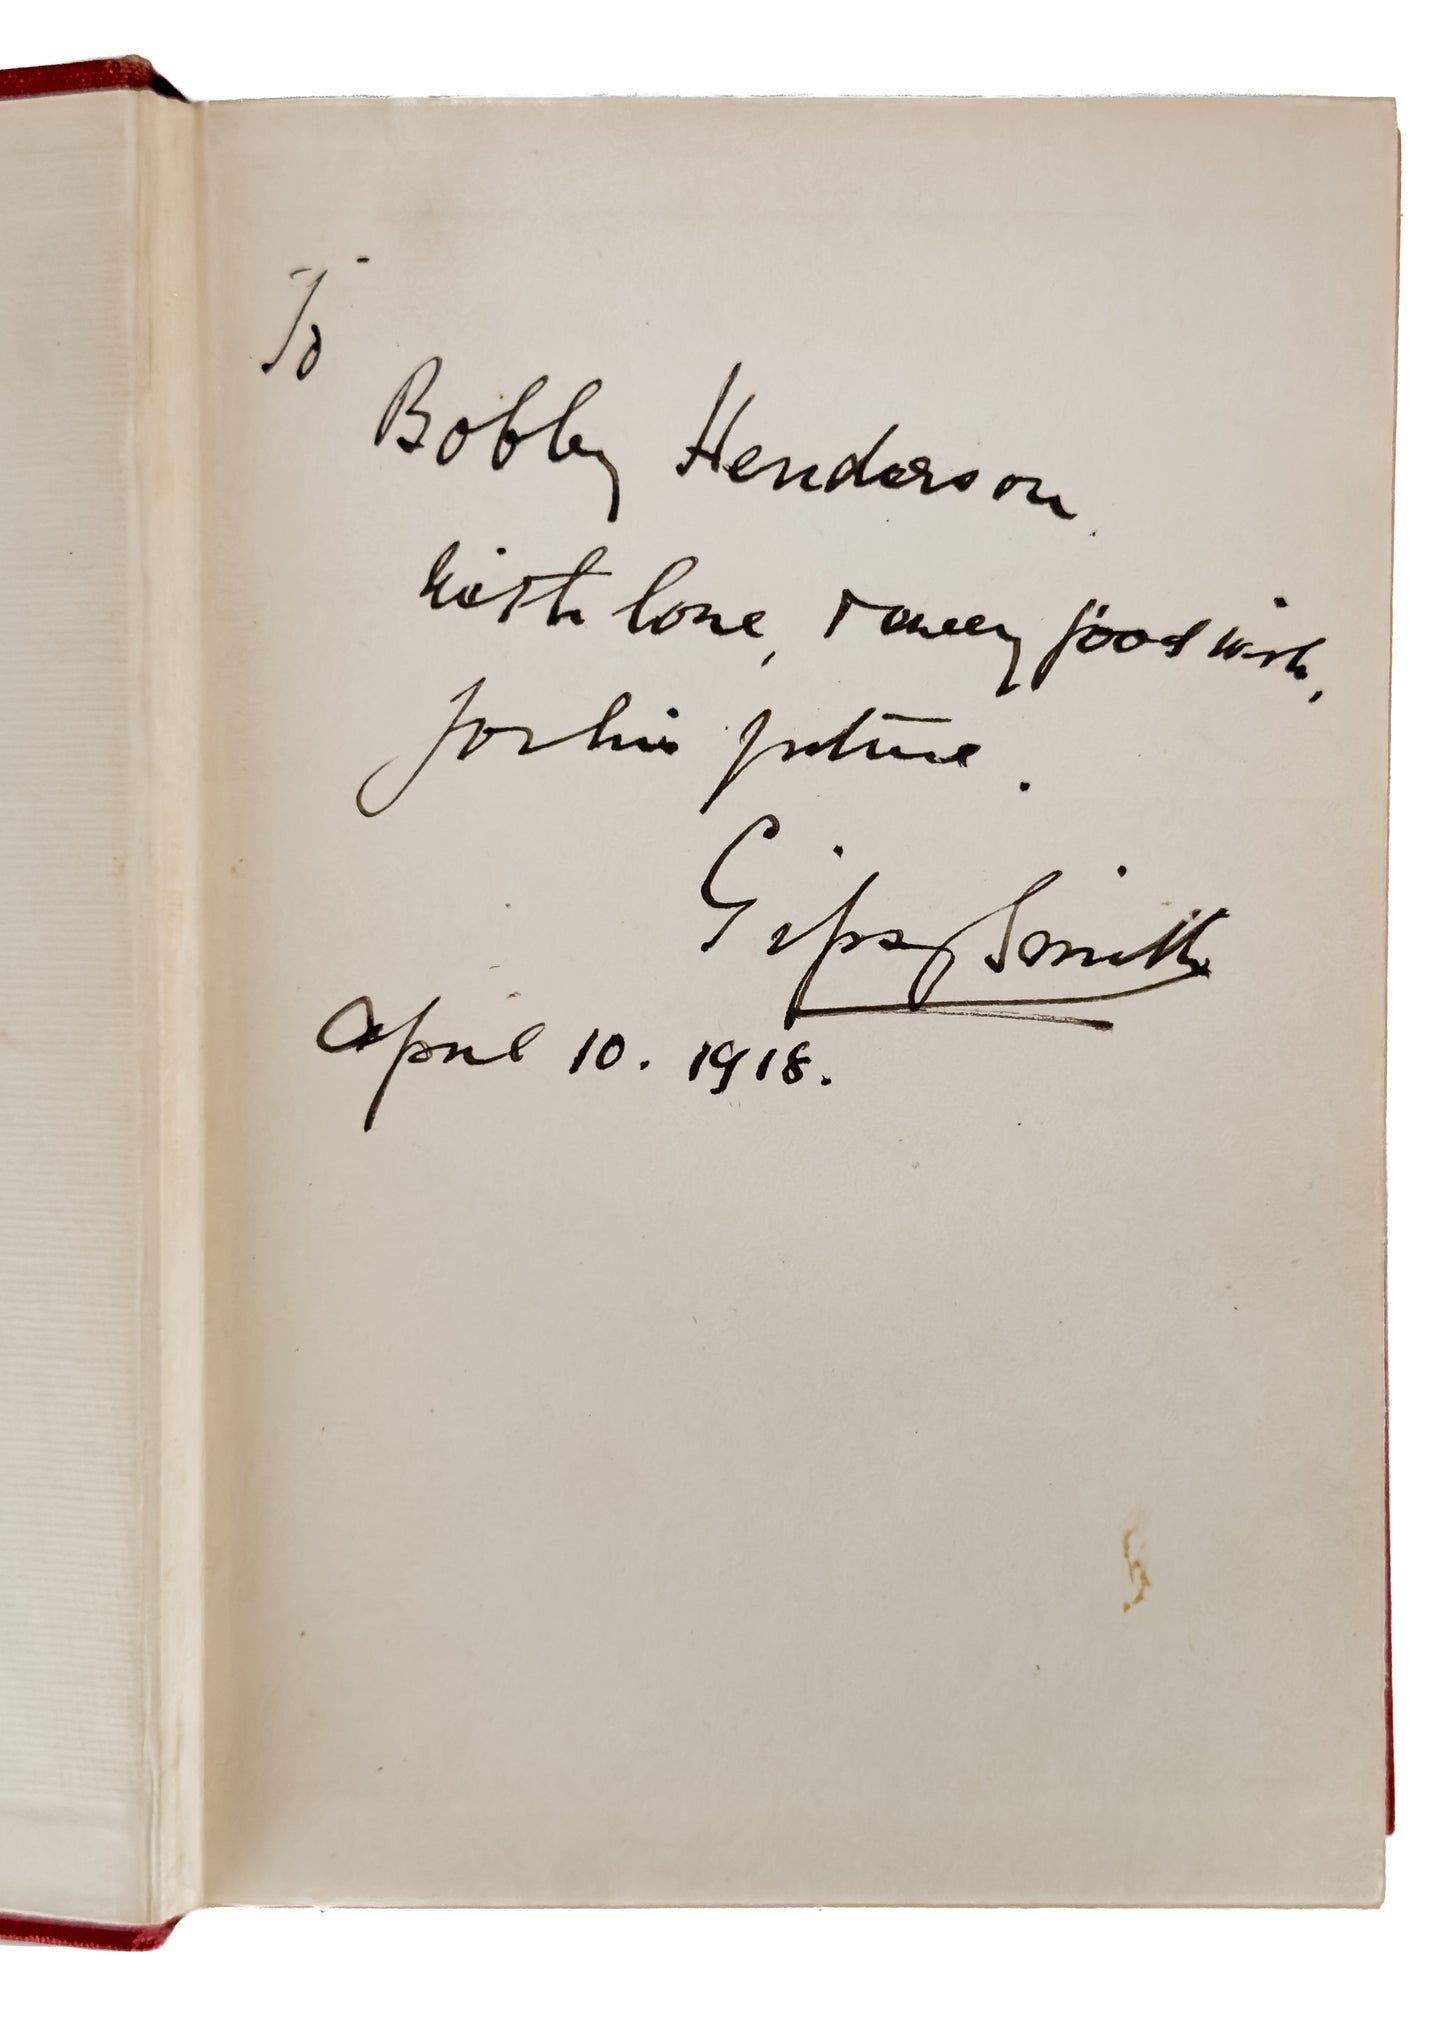 To
Bobby Henderson.
with love, & many good wishes,
for his future.
Gipsy Smith
April 10. 1918.